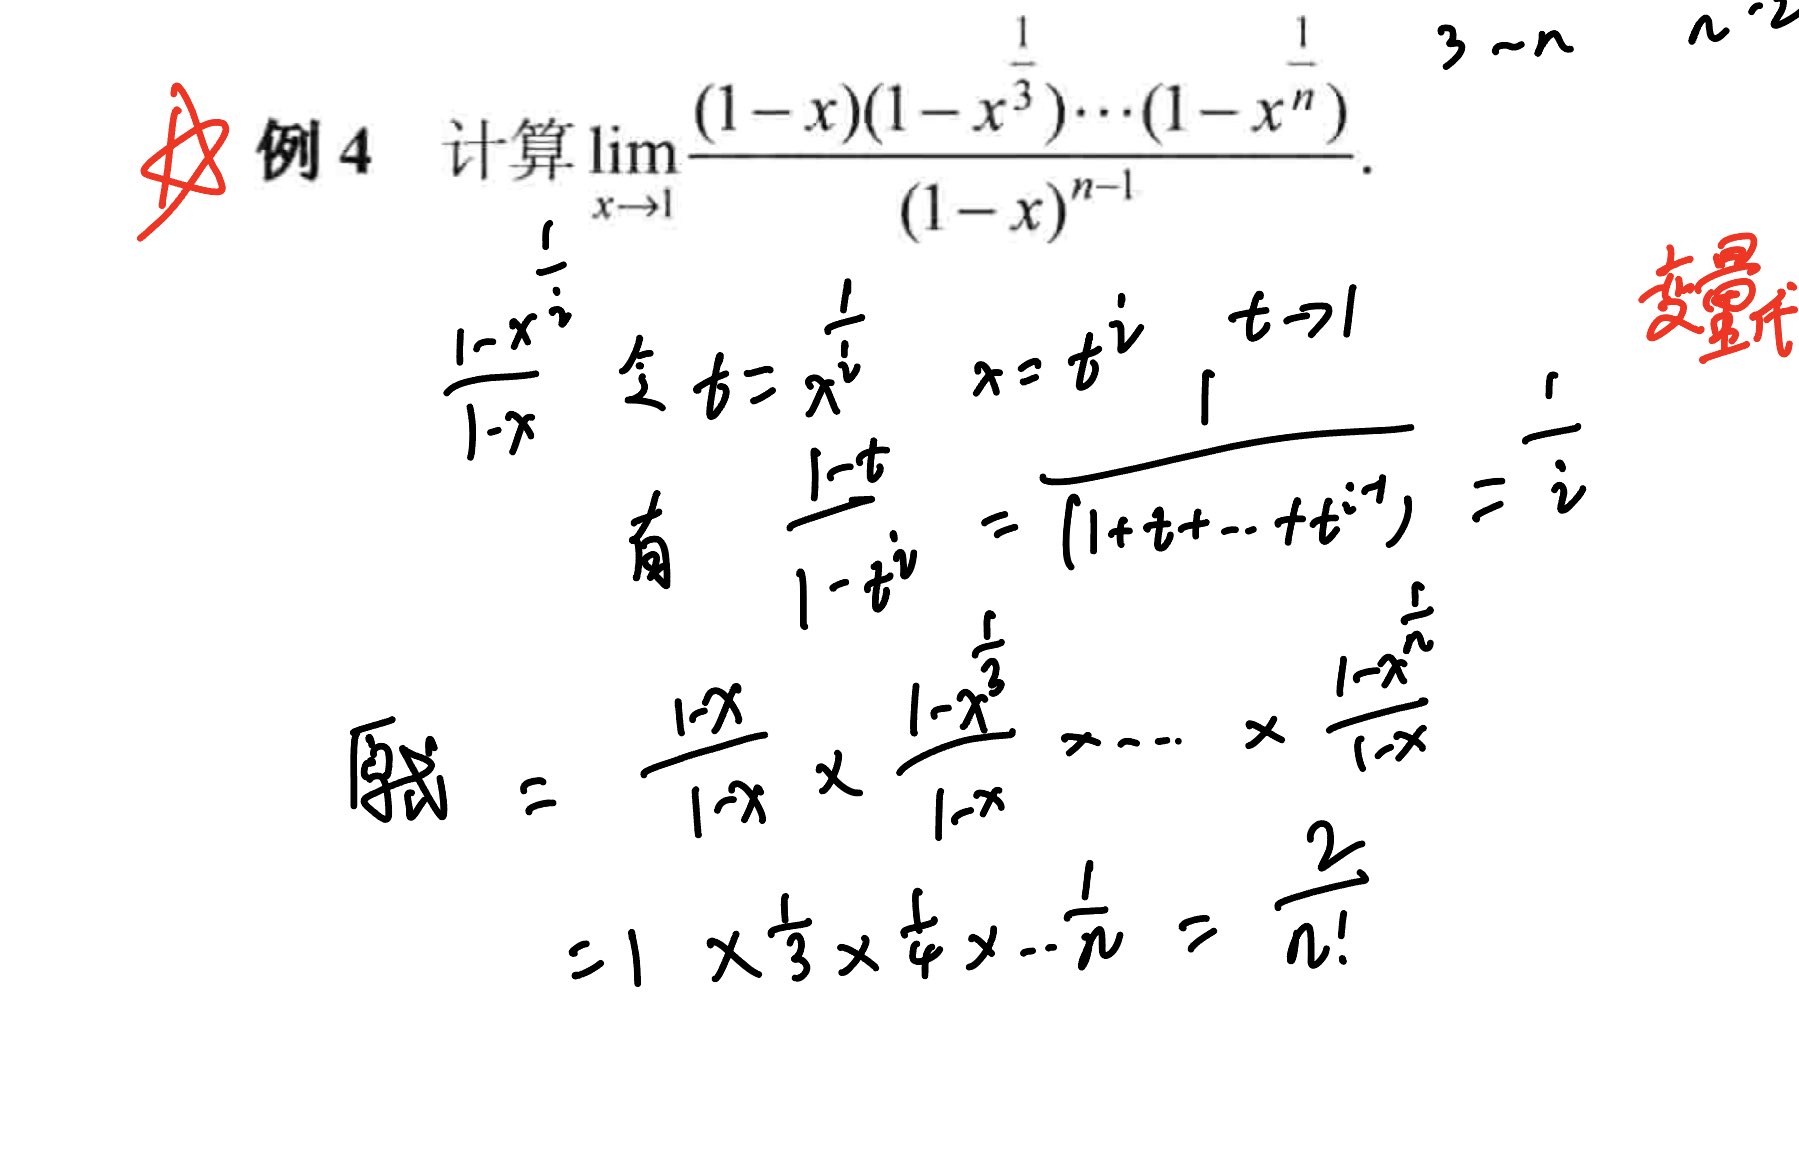 3~n n-2
例4 计算 lim_{x→1} \frac{(1-x)(1-x^{\frac{1}{3}})\cdots(1-x^{\frac{1}{n}})}{(1-x)^{n-1}}.
变量代
\frac{1-x^{\frac{1}{i}}}{1-x} 令 t = x^{\frac{1}{i}} x = t^{i} t→1
有 \frac{1-t}{1-t^{i}} = \frac{1}{(1+t+\cdots+t^{i-1})} = \frac{1}{i}
原式 = \frac{1-x}{1-x} × \frac{1-x^{\frac{1}{3}}}{1-x} × \cdots × \frac{1-x^{\frac{1}{n}}}{1-x}
= 1 × \frac{1}{3} × \frac{1}{4} × \cdots \frac{1}{n} = \frac{2}{n!}